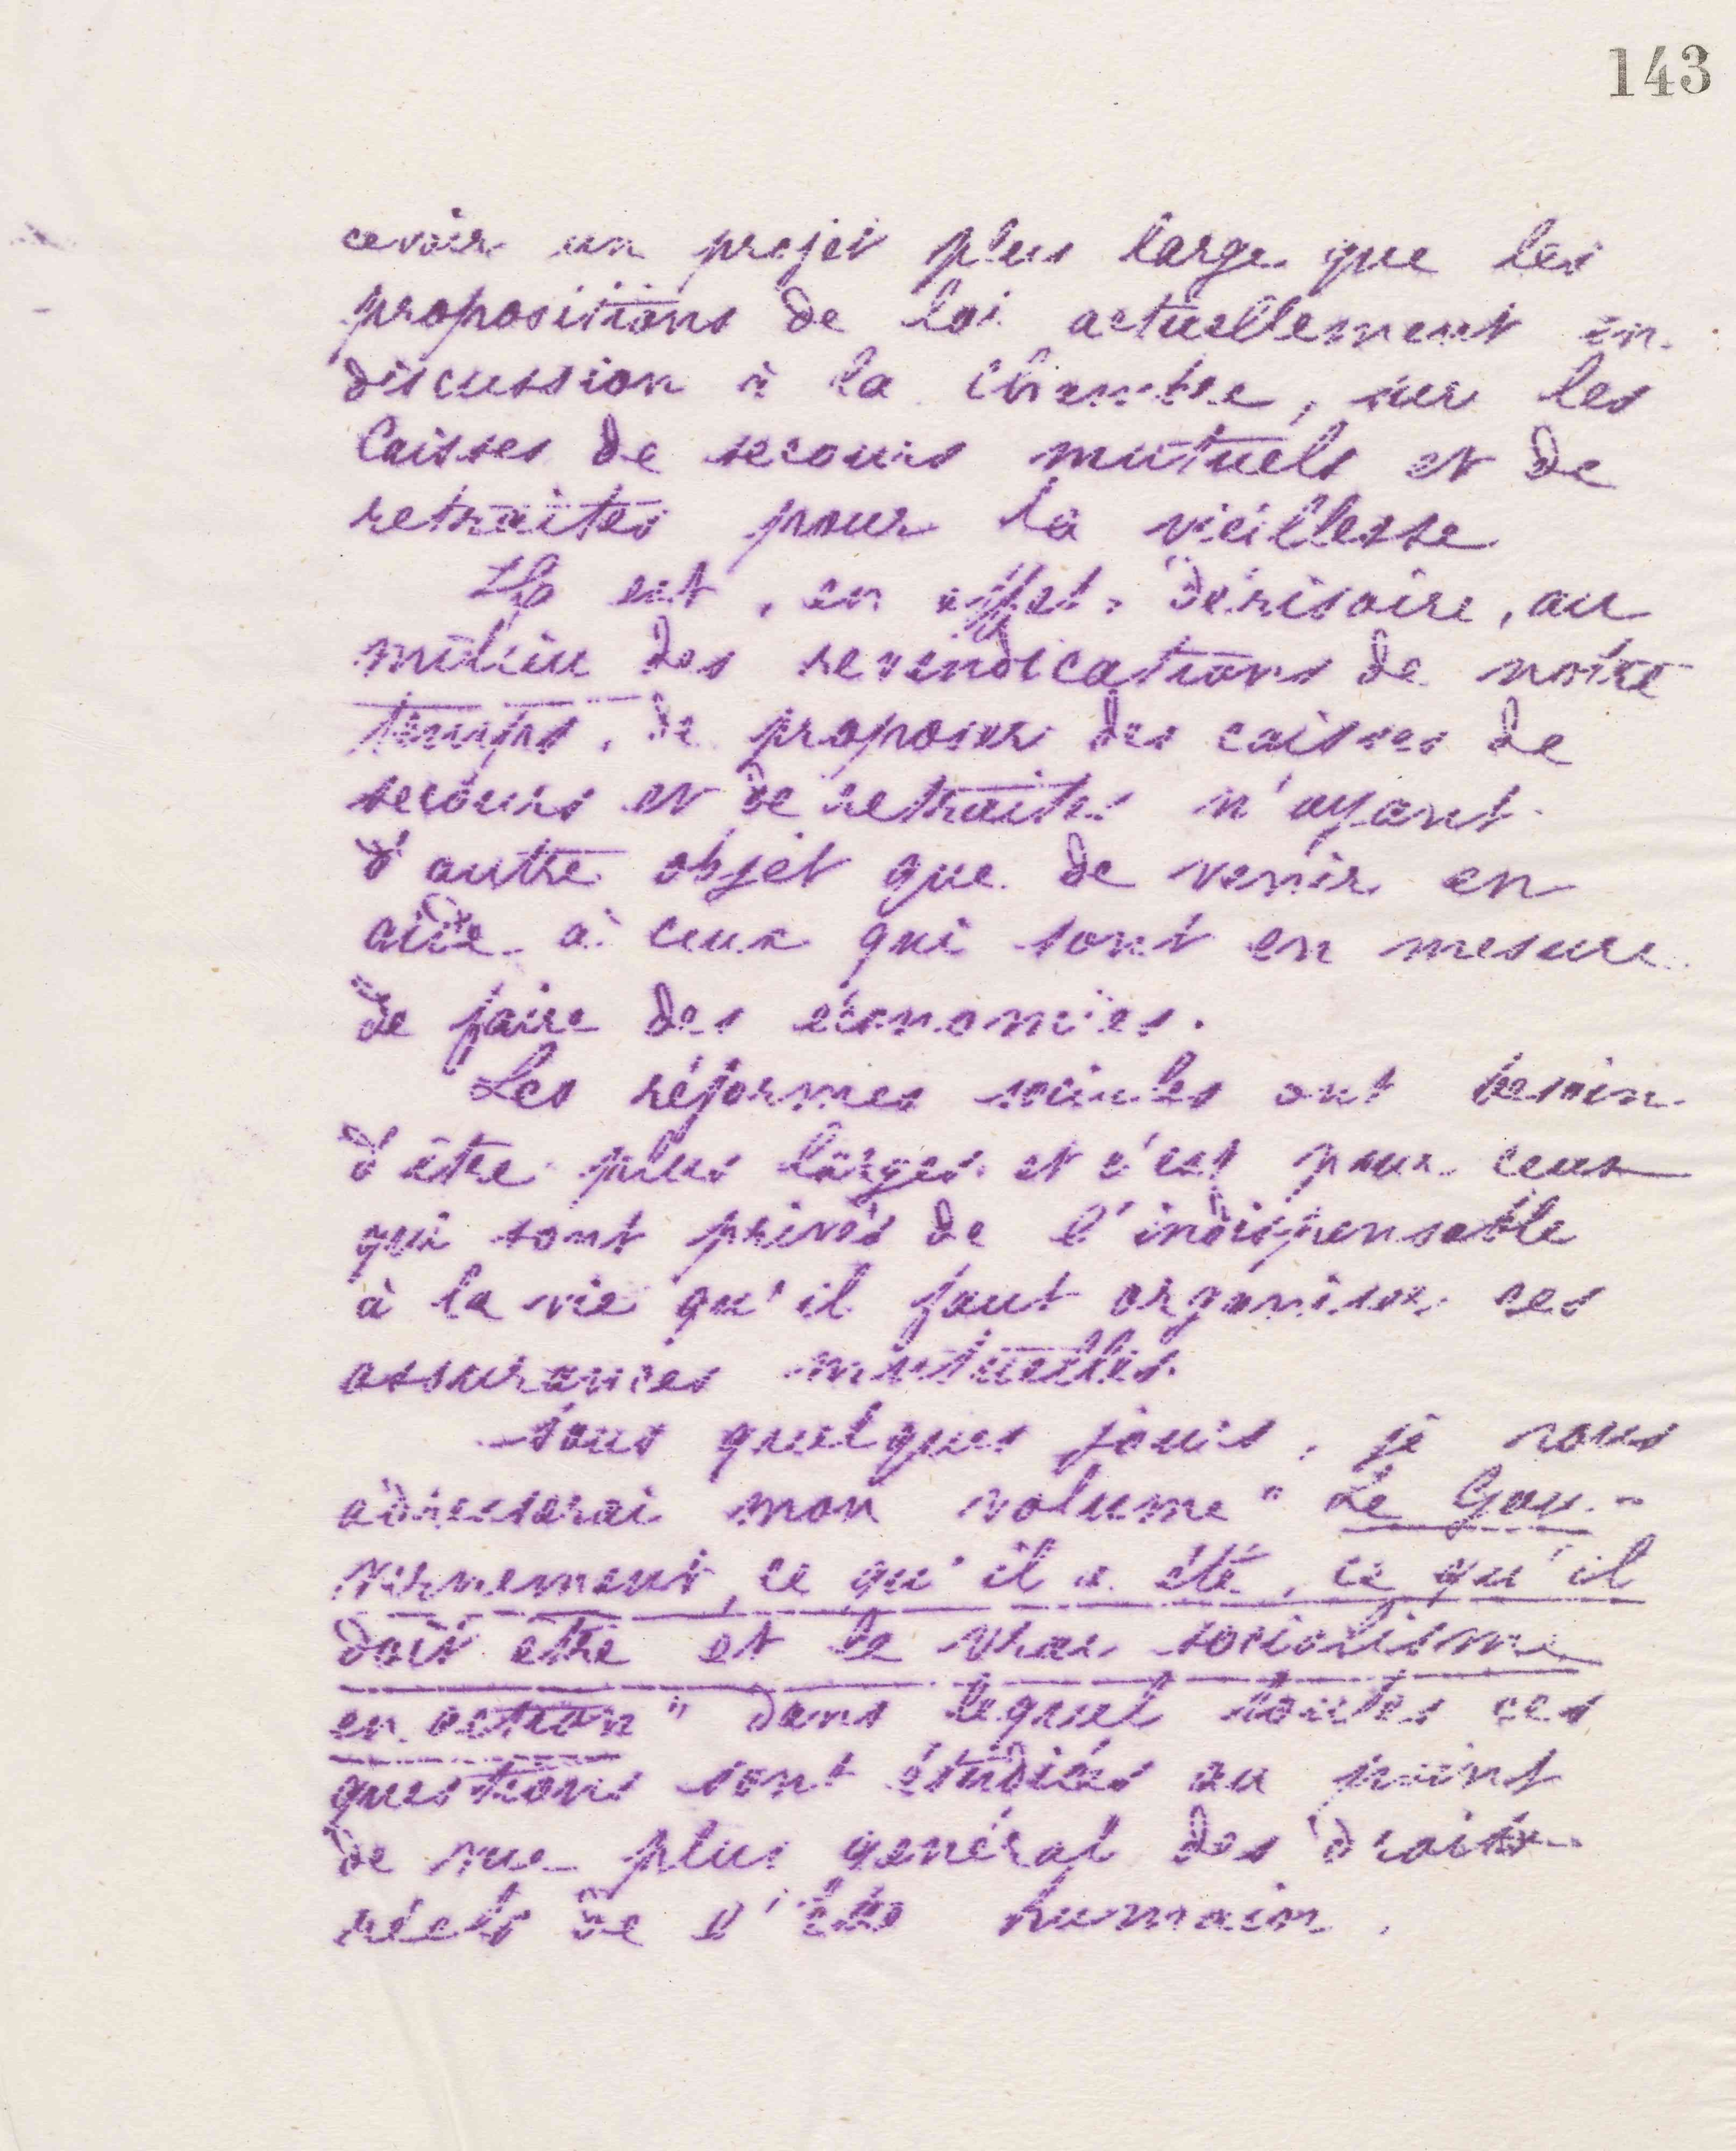 143
cevoir un projet plus large que les
propositions de loi actuellement en
discussion à la Chambre, sur les
Caisses de secours mutuels et de
retraites pour la vieillesse
Il est, en effet, dérisoire, au
milieu des revendications de notre
temps, de proposer des caisses de
secours et de retraites n'ayant
d'autre objet que de venir en
aide à ceux qui sont en mesure
de faire des économies.
Les réformes sociales ont besoin
d'être plus larges et c'est pour ceux
qui sont privés de l'indispensable
à la vie qu'il faut organiser ces
assurances mutuelles.
Sous quelques jours, je vous
adresserai mon volume " Le Gou-
vernement, ce qu'il a été, ce qu'il
doit être et le vrai socialisme
en action " dans lequel toutes ces
questions sont étudiées au point
de vue plus général des droits
réels de l'être humain.